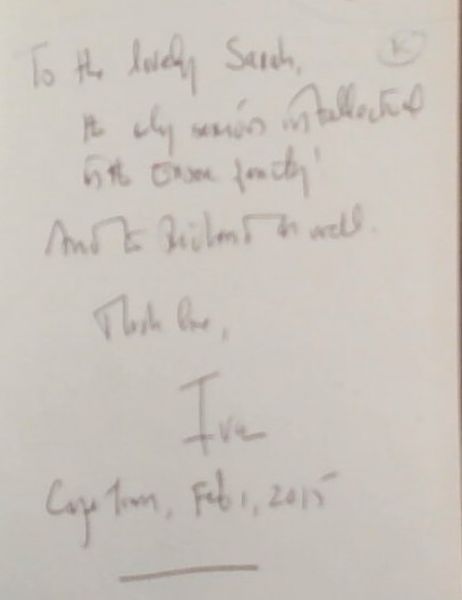 To the lovely Sarah, K
the only serious intellectual
in the family!
And to Richard as well.
Much love,
Cape Town, Feb 1, 2015